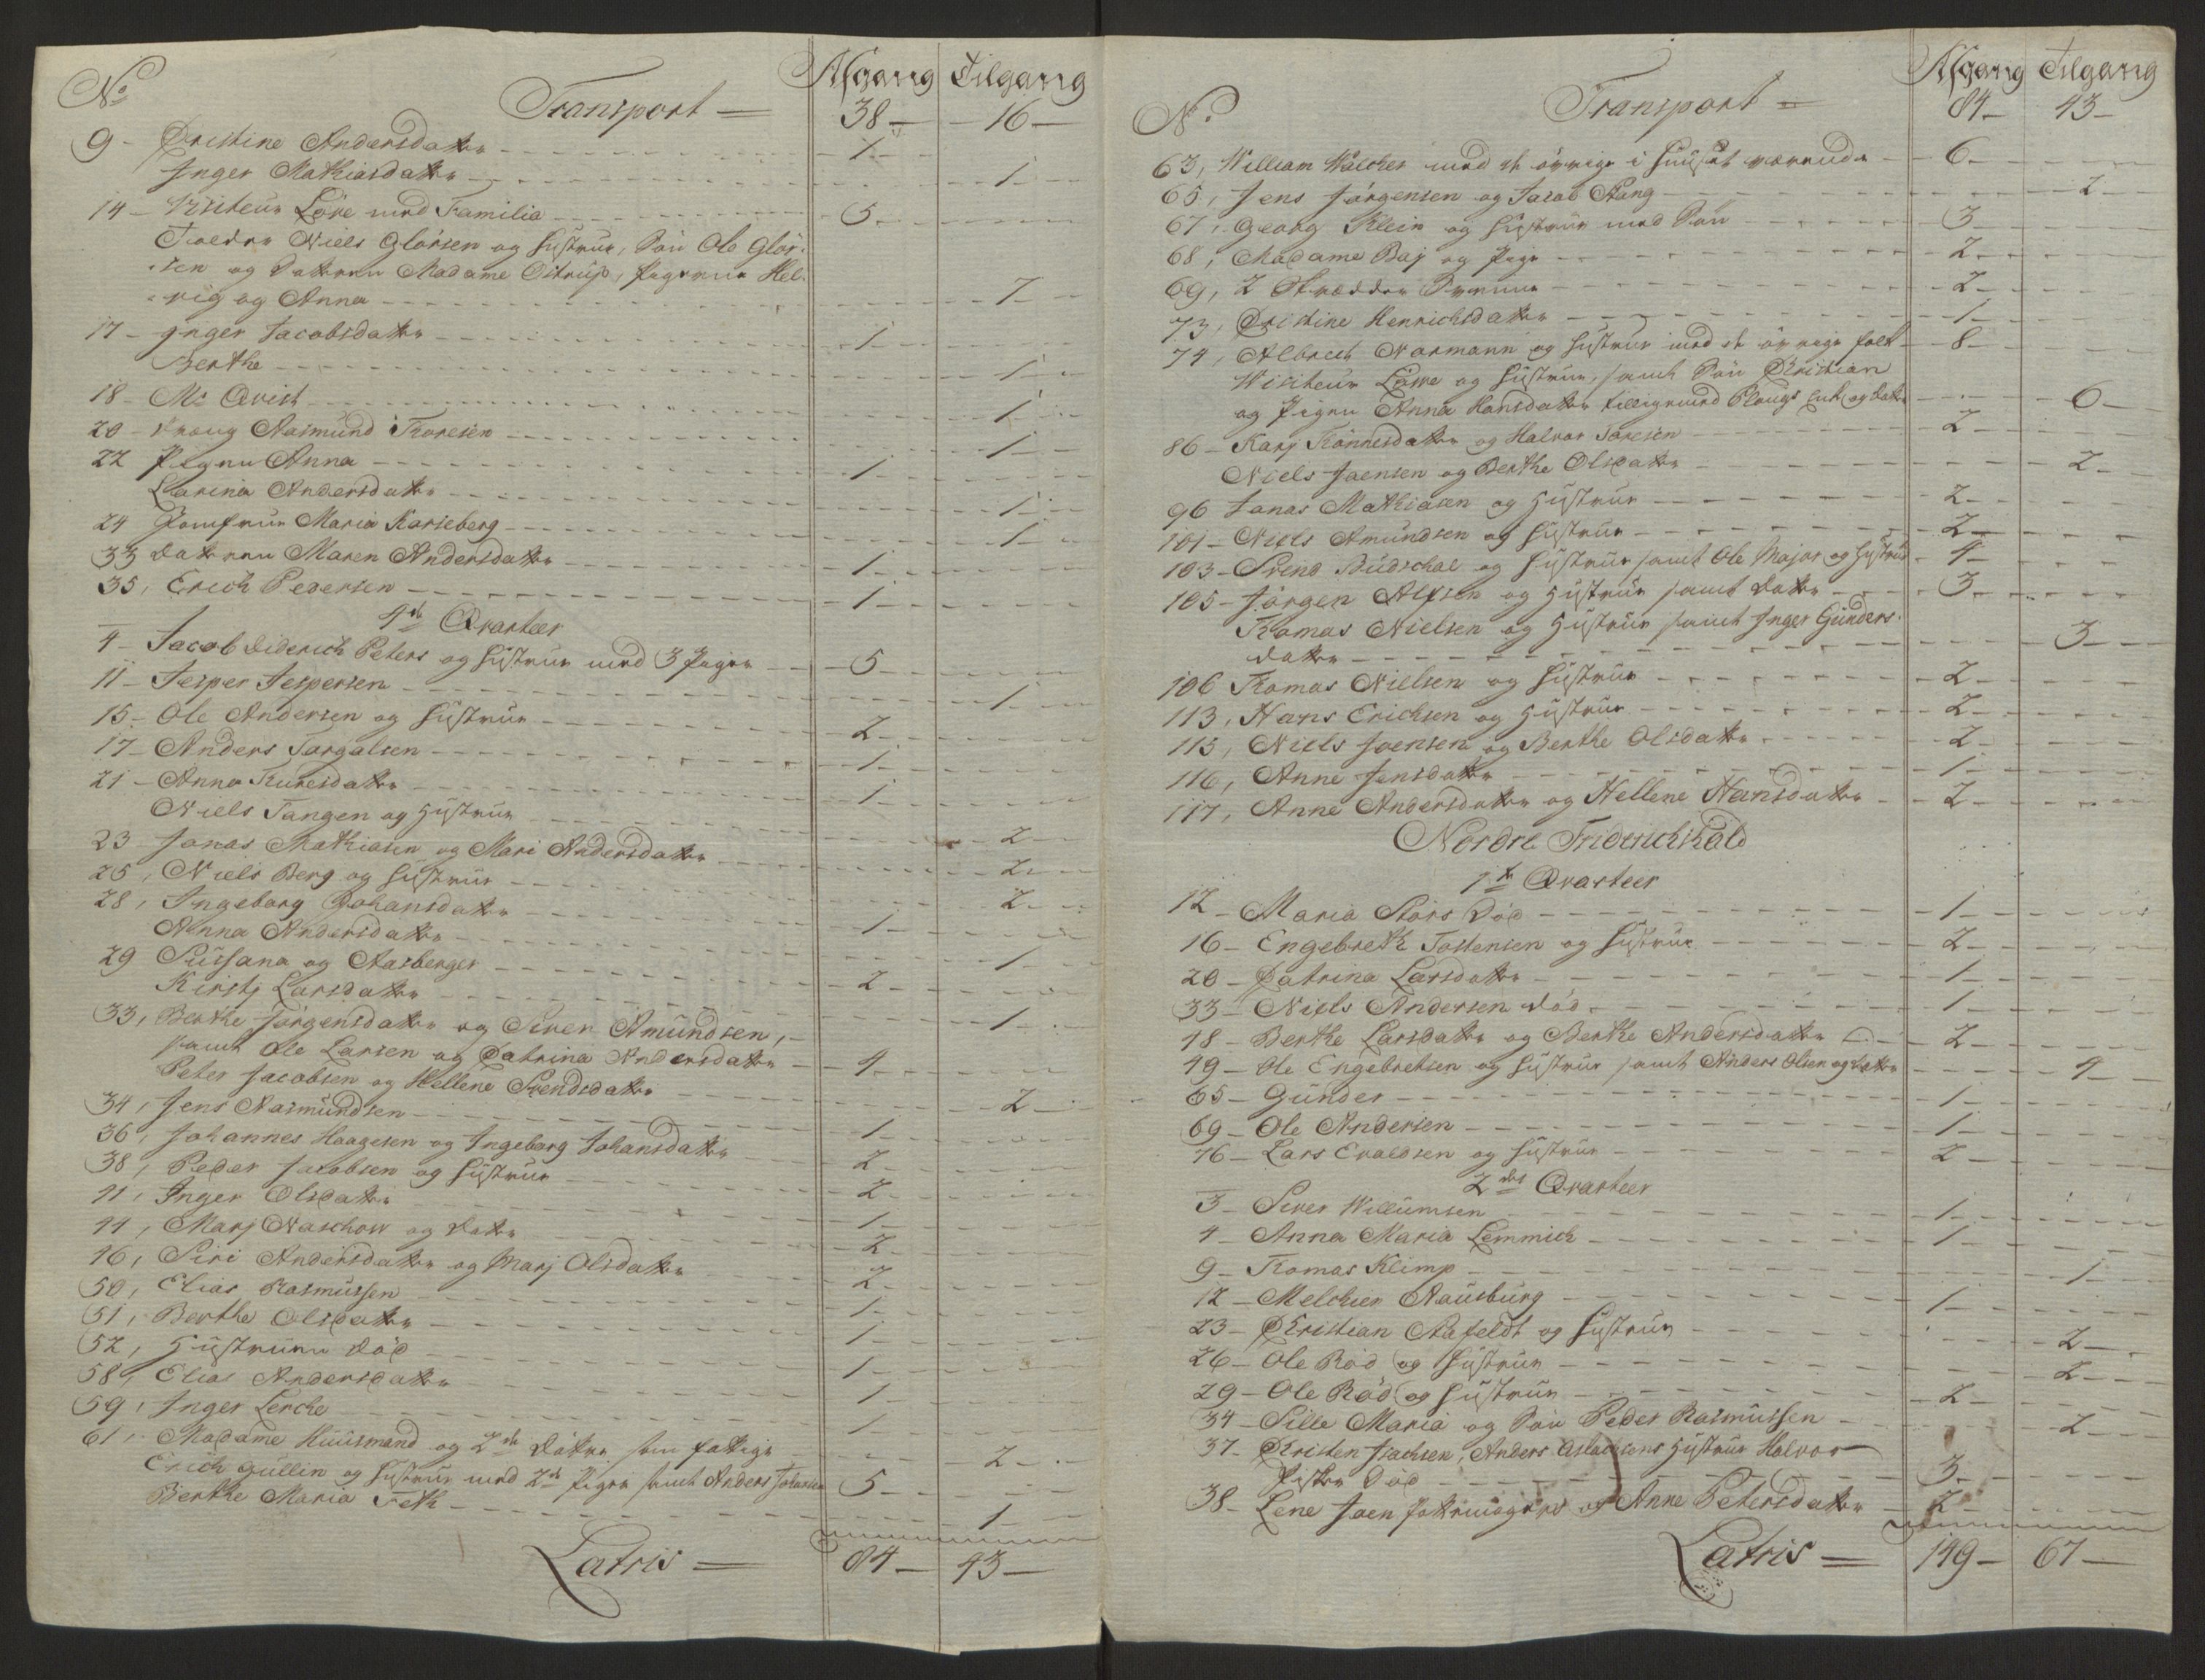 No Afgang Tilgang
Transport = 38 — 16 —
9 - Cristine Andersdatter 1
Inger Mathiasdatter 1
14 - Visiteur Löve med Familia 5
Tolder Niels Glörsen og Hustrue, Søn Ole Glör-
sen og Datteren Madame Ostrup, Pigerne Hel-
vig og Anna 7
17 - Inger Jacobsdatter 1
Berthe 1
18 - Mr Qvist 1
20 - Dreng Aasmund Thoresen 1
22 Pigen Anna 1
Larina Andersdatter 1
24 Jomfrue Maria Karseberg 1
33 Datteren Maren Andersdatter 1
35, Erich Pedersen 1
4de Qvarteer
4 - Jacob Diderich Peters og Hustrue med 3 Piger 5
11 - Jesper Jespersen 1
15 - Ole Andersen og Hustrue 2
17 - Anders Torgalsen 1
21 - Anna Thuresdatter 1
Niels Tangen og Hustrue 2
23 Jonas Mathiasen og Mari Andersdatter 2
25, Niels Berg og Hustrue 2
28, Ingeborg Johansdatter 1
Anna Andersdatter 1
29 Sussana og Aasberger 2
Kirstj Larsdatter 1
33, Berthe Jörgensdatter og Siver Amundsen,
samt Ole Larsen og Catrina Andersdatter 4
Peter Jacobsen og Hellene Svendsdatter 2
34, Jens Aasmundsen 1
36, Johannes Haagesen og Ingeborg Johansdatter 2
38, Peder Jacobsen og Hustrue 2
41, Inger Olsdatter 1
44, Marj Naschow og Datter 2
46, Siri Andersdatter og Marj Olsdatter 2
50, Elias Rasmussen 1
51, Berthe Olsdatter 1
52, Hustruen død 1
58, Elias Andersdatter 1
59, Inger Lerche 1
61, Madame Huusmand og 2de Døttre som fattige 2
Erich Gullin og Hustrue med 2de Piger samt Anders Johansen 5
Berthe Maria Feth 1
Latris = 84 — 43 —
No Afgang Tilgang
Transport = 84 — 43 —
63, William Wälcher med de øvrige i Huuset værende 6
65, Jens Jörgensen og Jacob Stang 2
67, Georg Klein og Hustrue med Søn 3
68, Madame Baj og Pige 2
69, 2 Skrædder Svenne 2
73, Cristine Henrichsdatter 1
74, Albrech Normann og Hustrue med de øvrige folk 8
Visiteur Löwe og Hustrue, samt Søn Christian
og Pigen Anna Hansdatter tilligemed Plougs Enke og Datter 6
86 - Karj Tönnesdatter og Halvor Toresen 2
Niels Joensen og Berthe Olsdatter 2
96 Jonas Mathiasen og Hustrue 2
101 - Niels Amundsen og Hustrue 2
103 - Svend Büdschal og Hustrue samt Ole Major og Hustrue 4
105 - Jörgen Alfsen og Hustrue samt Datter 3
Thomas Nielsen og Hustrue samt Inger Günders-
datter 3
106 Thomas Nielsen og Hustrue 2
113, Hans Erichsen og Hustrue 2
115, Niels Joensen og Berthe Olsdatter 2
116, Anne Jensdatter 1
117, Anne Andersdatter og Hellene Hansdatter 2
Nordre Friderichshald
1te Qvarteer
12 - Maria Störs Död 1
16 - Engebreth Tostensen og Hustrue 2
20 - Catrina Larsdatter 1
33 - Niels Andersen død 1
48 - Berthe Larsdatter og Berthe Andersdatter 2
49 - Ole Engebretsen og Hustrue samt Anders Olsen og Datter 4
65 - Günder 1
69 - Ole Andersen 1
76 - Lars Evaldsen og Hustrue 2
2det Qvarteer
3 - Siver Willumsen 1
4 - Anna Maria Lemmich 1
9 - Thomas Klimp 1
12 - Melchier Aausburg 1
23 - Christian Aafeldt og Hustrue 2
26 - Ole Röd og Hustrue 2
29 - Ole Röd og Hustrue 2
34 - Sille Maria og Søn Peder Rasmussen 2
37 - Kristen Isachsen, Anders Aslacksens Hustrue Halvor
Død 3
38 - Lene Joen og Anne Petersdatter 2
Latris = 149 — 67 —